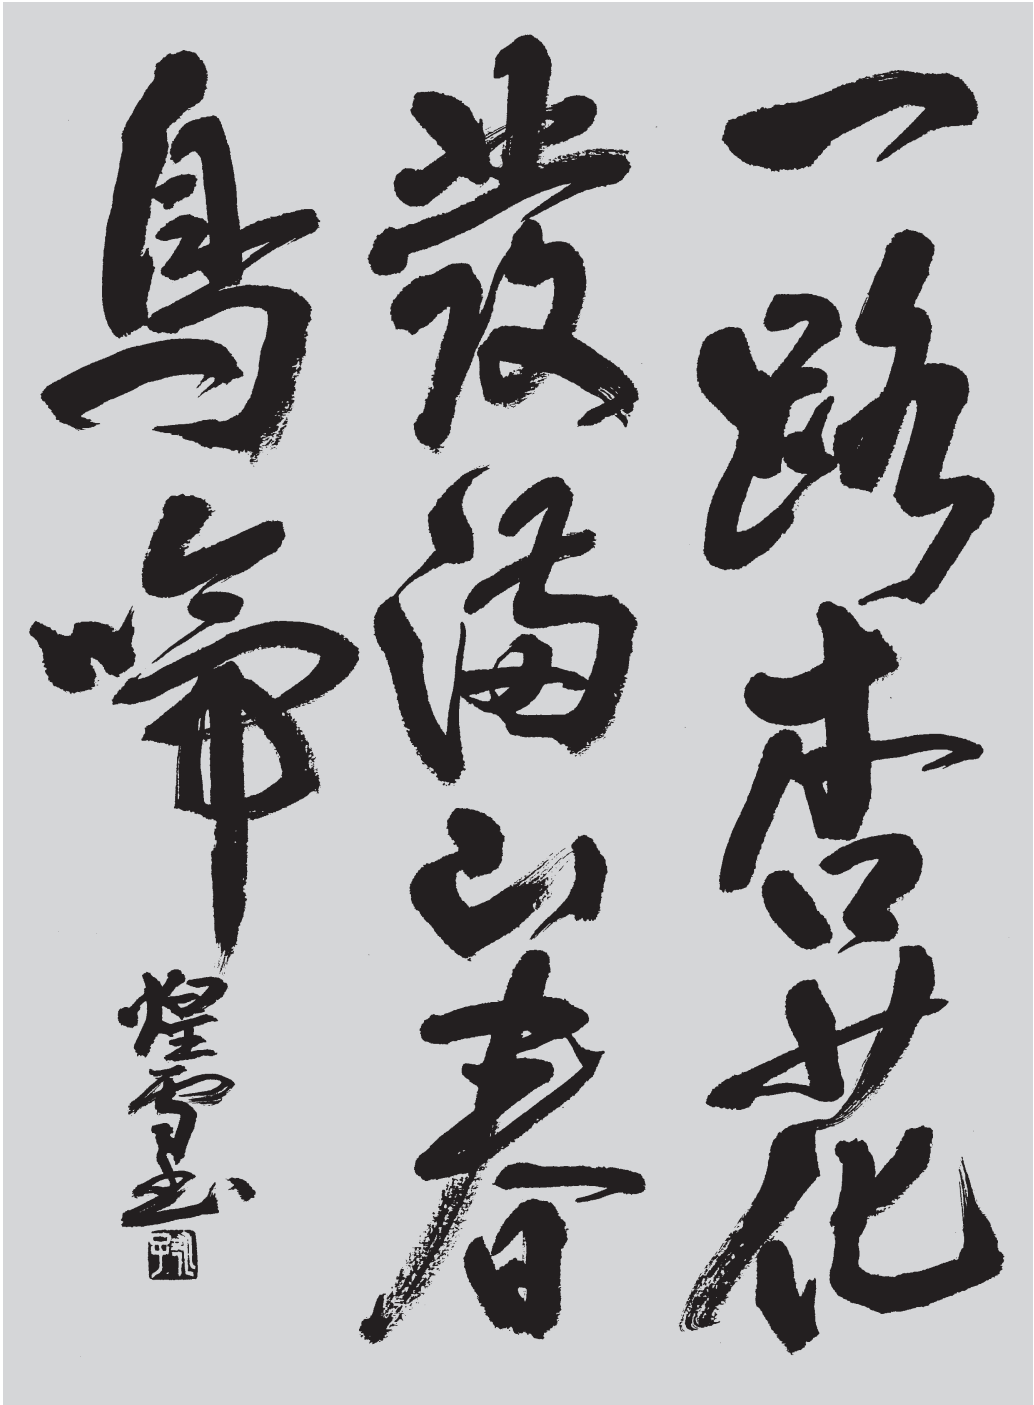 一路杏花
發滿山春
鳥啼
煌雪